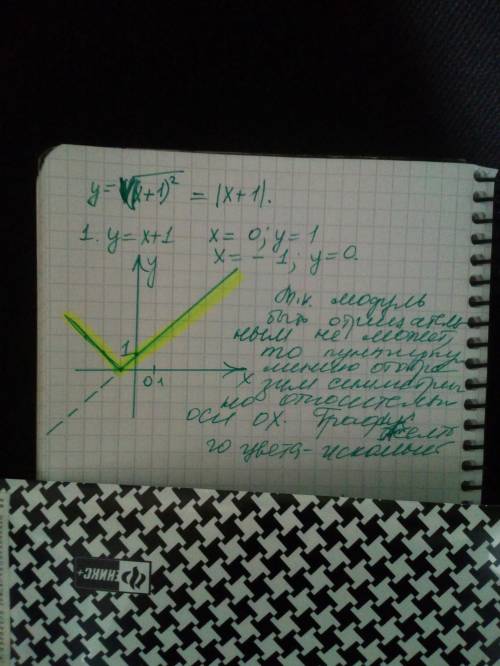 y = √(x+1)² = |x+1|.
1. y = x+1 x = 0; y = 1
x = -1; y = 0.
y
Т.к. модуль
быть отрицатель
ным не может
1
то пунктирну
линию отобра
X
0 1
зим симметрич
но относительн
оси OX. График
желто
го цвета - искомый
ЕНИКС+